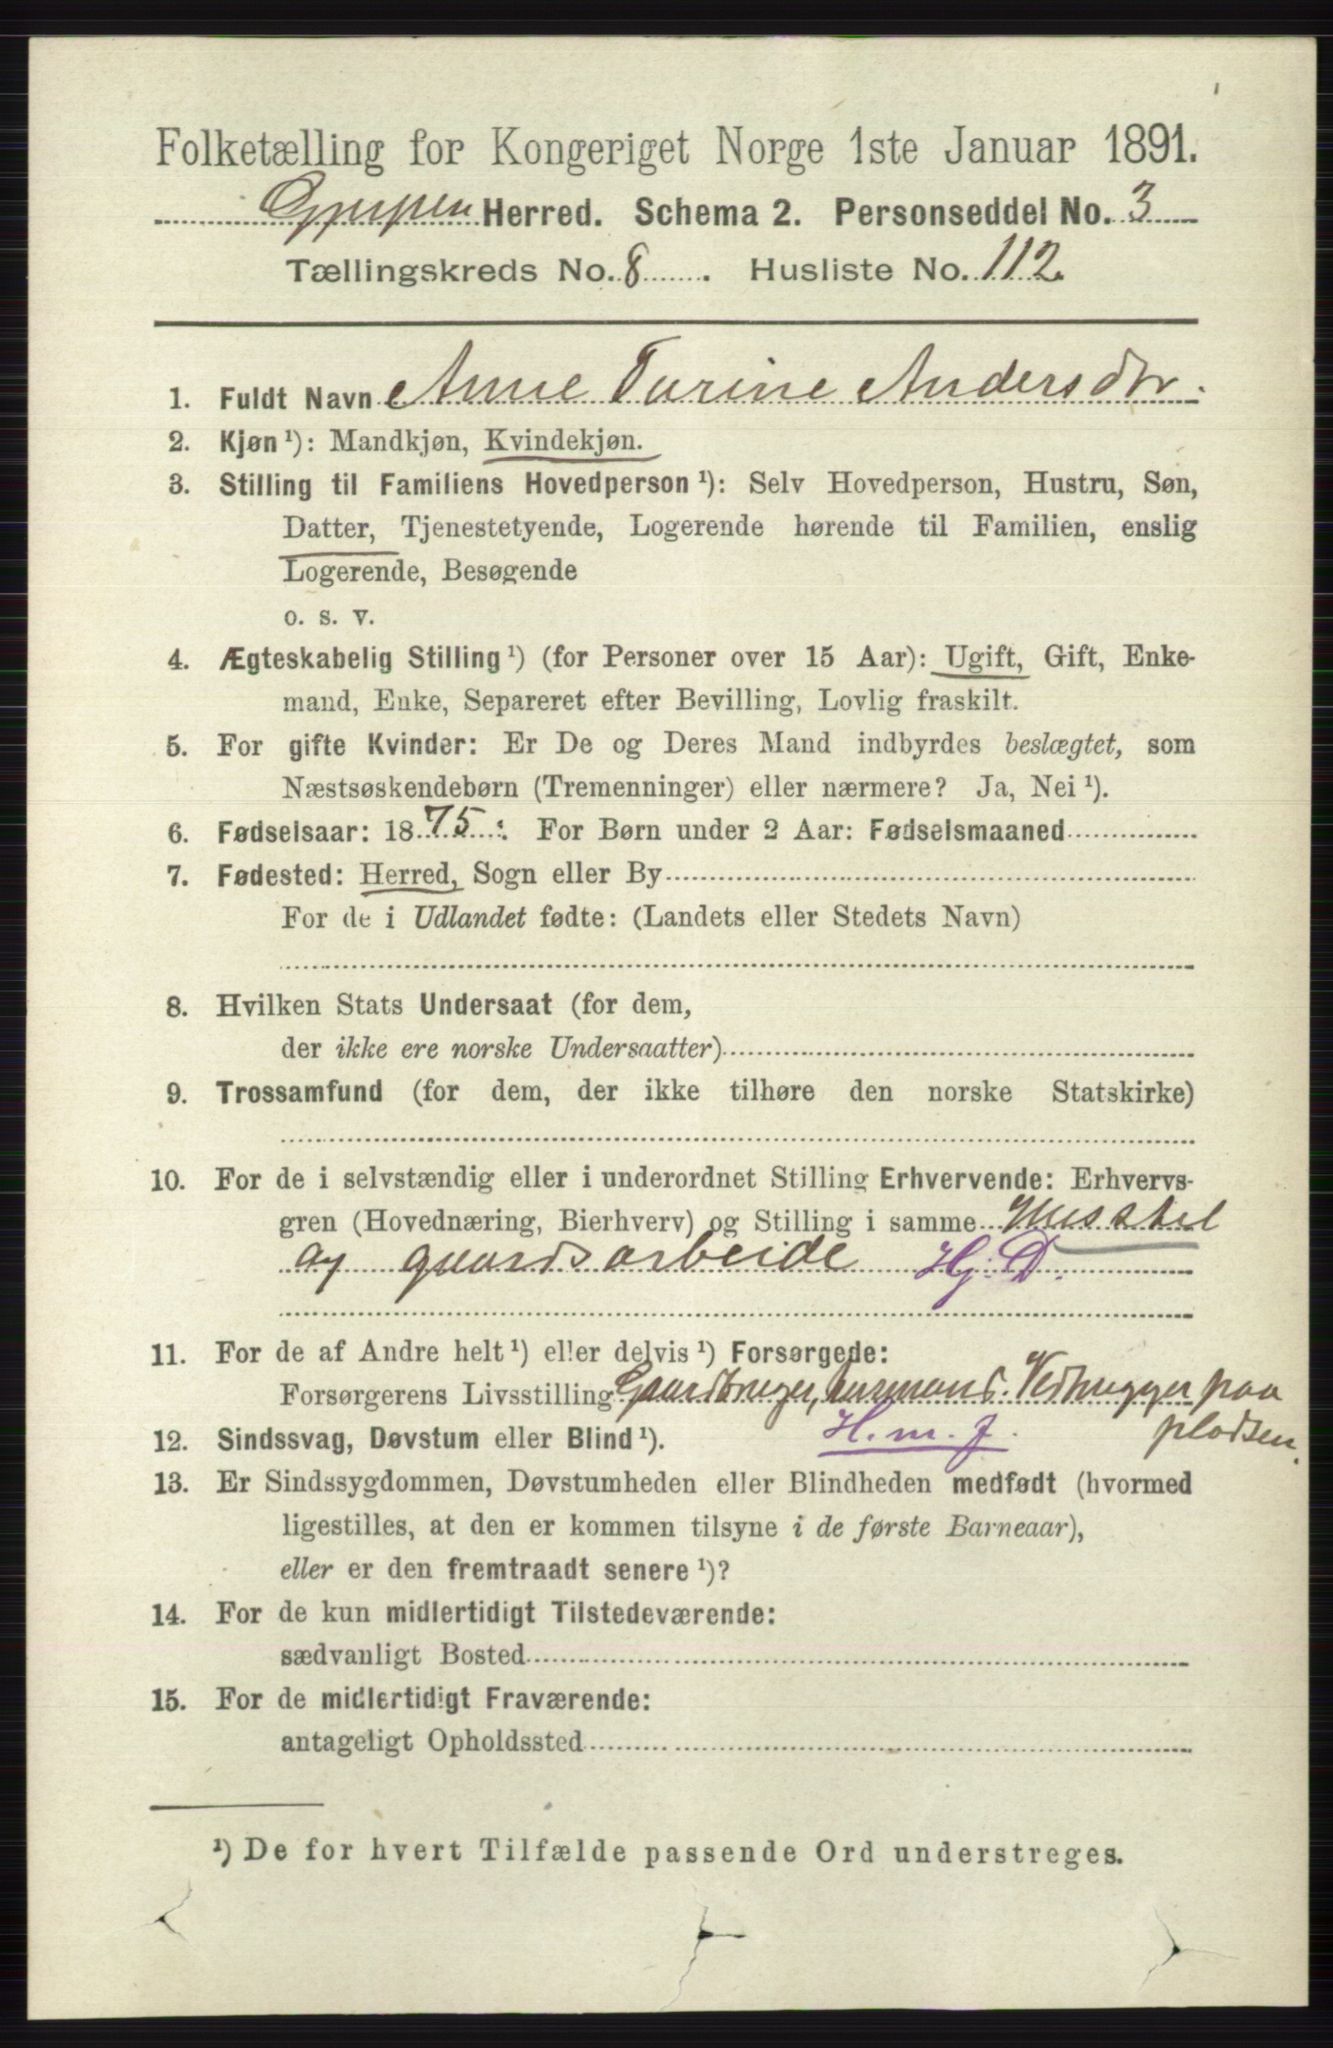 Folketælling for Kongeriget Norge 1ste Januar 1891.
Gjerpen Herred. Schema 2. Personseddel No. 3
Tællingskreds No. 8. Husliste No. 112.
1. Fuldt Navn Anne Turine Andersdtr.
2. Kjøn ¹): Mandkjøn, Kvindekjøn.
3. Stilling til Familiens Hovedperson ¹): Selv Hovedperson, Hustru, Søn,
Datter, Tjenestetyende, Logerende hørende til Familien, enslig
Logerende, Besøgende
o. s. v.
4. Ægteskabelig Stilling ¹) (for Personer over 15 Aar): Ugift, Gift, Enke-
mand, Enke, Separeret efter Bevilling, Lovlig fraskilt.
5. For gifte Kvinder: Er De og Deres Mand indbyrdes beslægtet, som
Næstsøskendebørn (Tremenninger) eller nærmere? Ja, Nei ¹).
6. Fødselsaar: 1875. For Børn under 2 Aar: Fødselsmaaned
7. Fødested: Herred, Sogn eller By
For de i Udlandet fødte: (Landets eller Stedets Navn)
8. Hvilken Stats Undersaat (for dem,
der ikke ere norske Undersaatter)
9. Trossamfund (for dem, der ikke tilhøre den norske Statskirke)
10. For de i selvstændig eller i underordnet Stilling Erhvervende: Erhvervs-
gren (Hovednæring, Bierhverv) og Stilling i samme Husstel
og gaardsarbeide Hj. D.
11. For de af Andre helt ¹) eller delvis ¹) Forsørgede:
Forsørgerens Livsstilling Gaardbruger, Vedhugger paa
pladsen.
12. Sindssvag, Døvstum eller Blind ¹). H. m. f.
13. Er Sindssygdommen, Døvstumheden eller Blindheden medfødt (hvormed
ligestilles, at den er kommen tilsyne i de første Barneaar),
eller er den fremtraadt senere ¹)?
14. For de kun midlertidigt Tilstedeværende:
sædvanligt Bosted
15. For de midlertidigt Fraværende:
antageligt Opholdssted
¹) De for hvert Tilfælde passende Ord understreges.